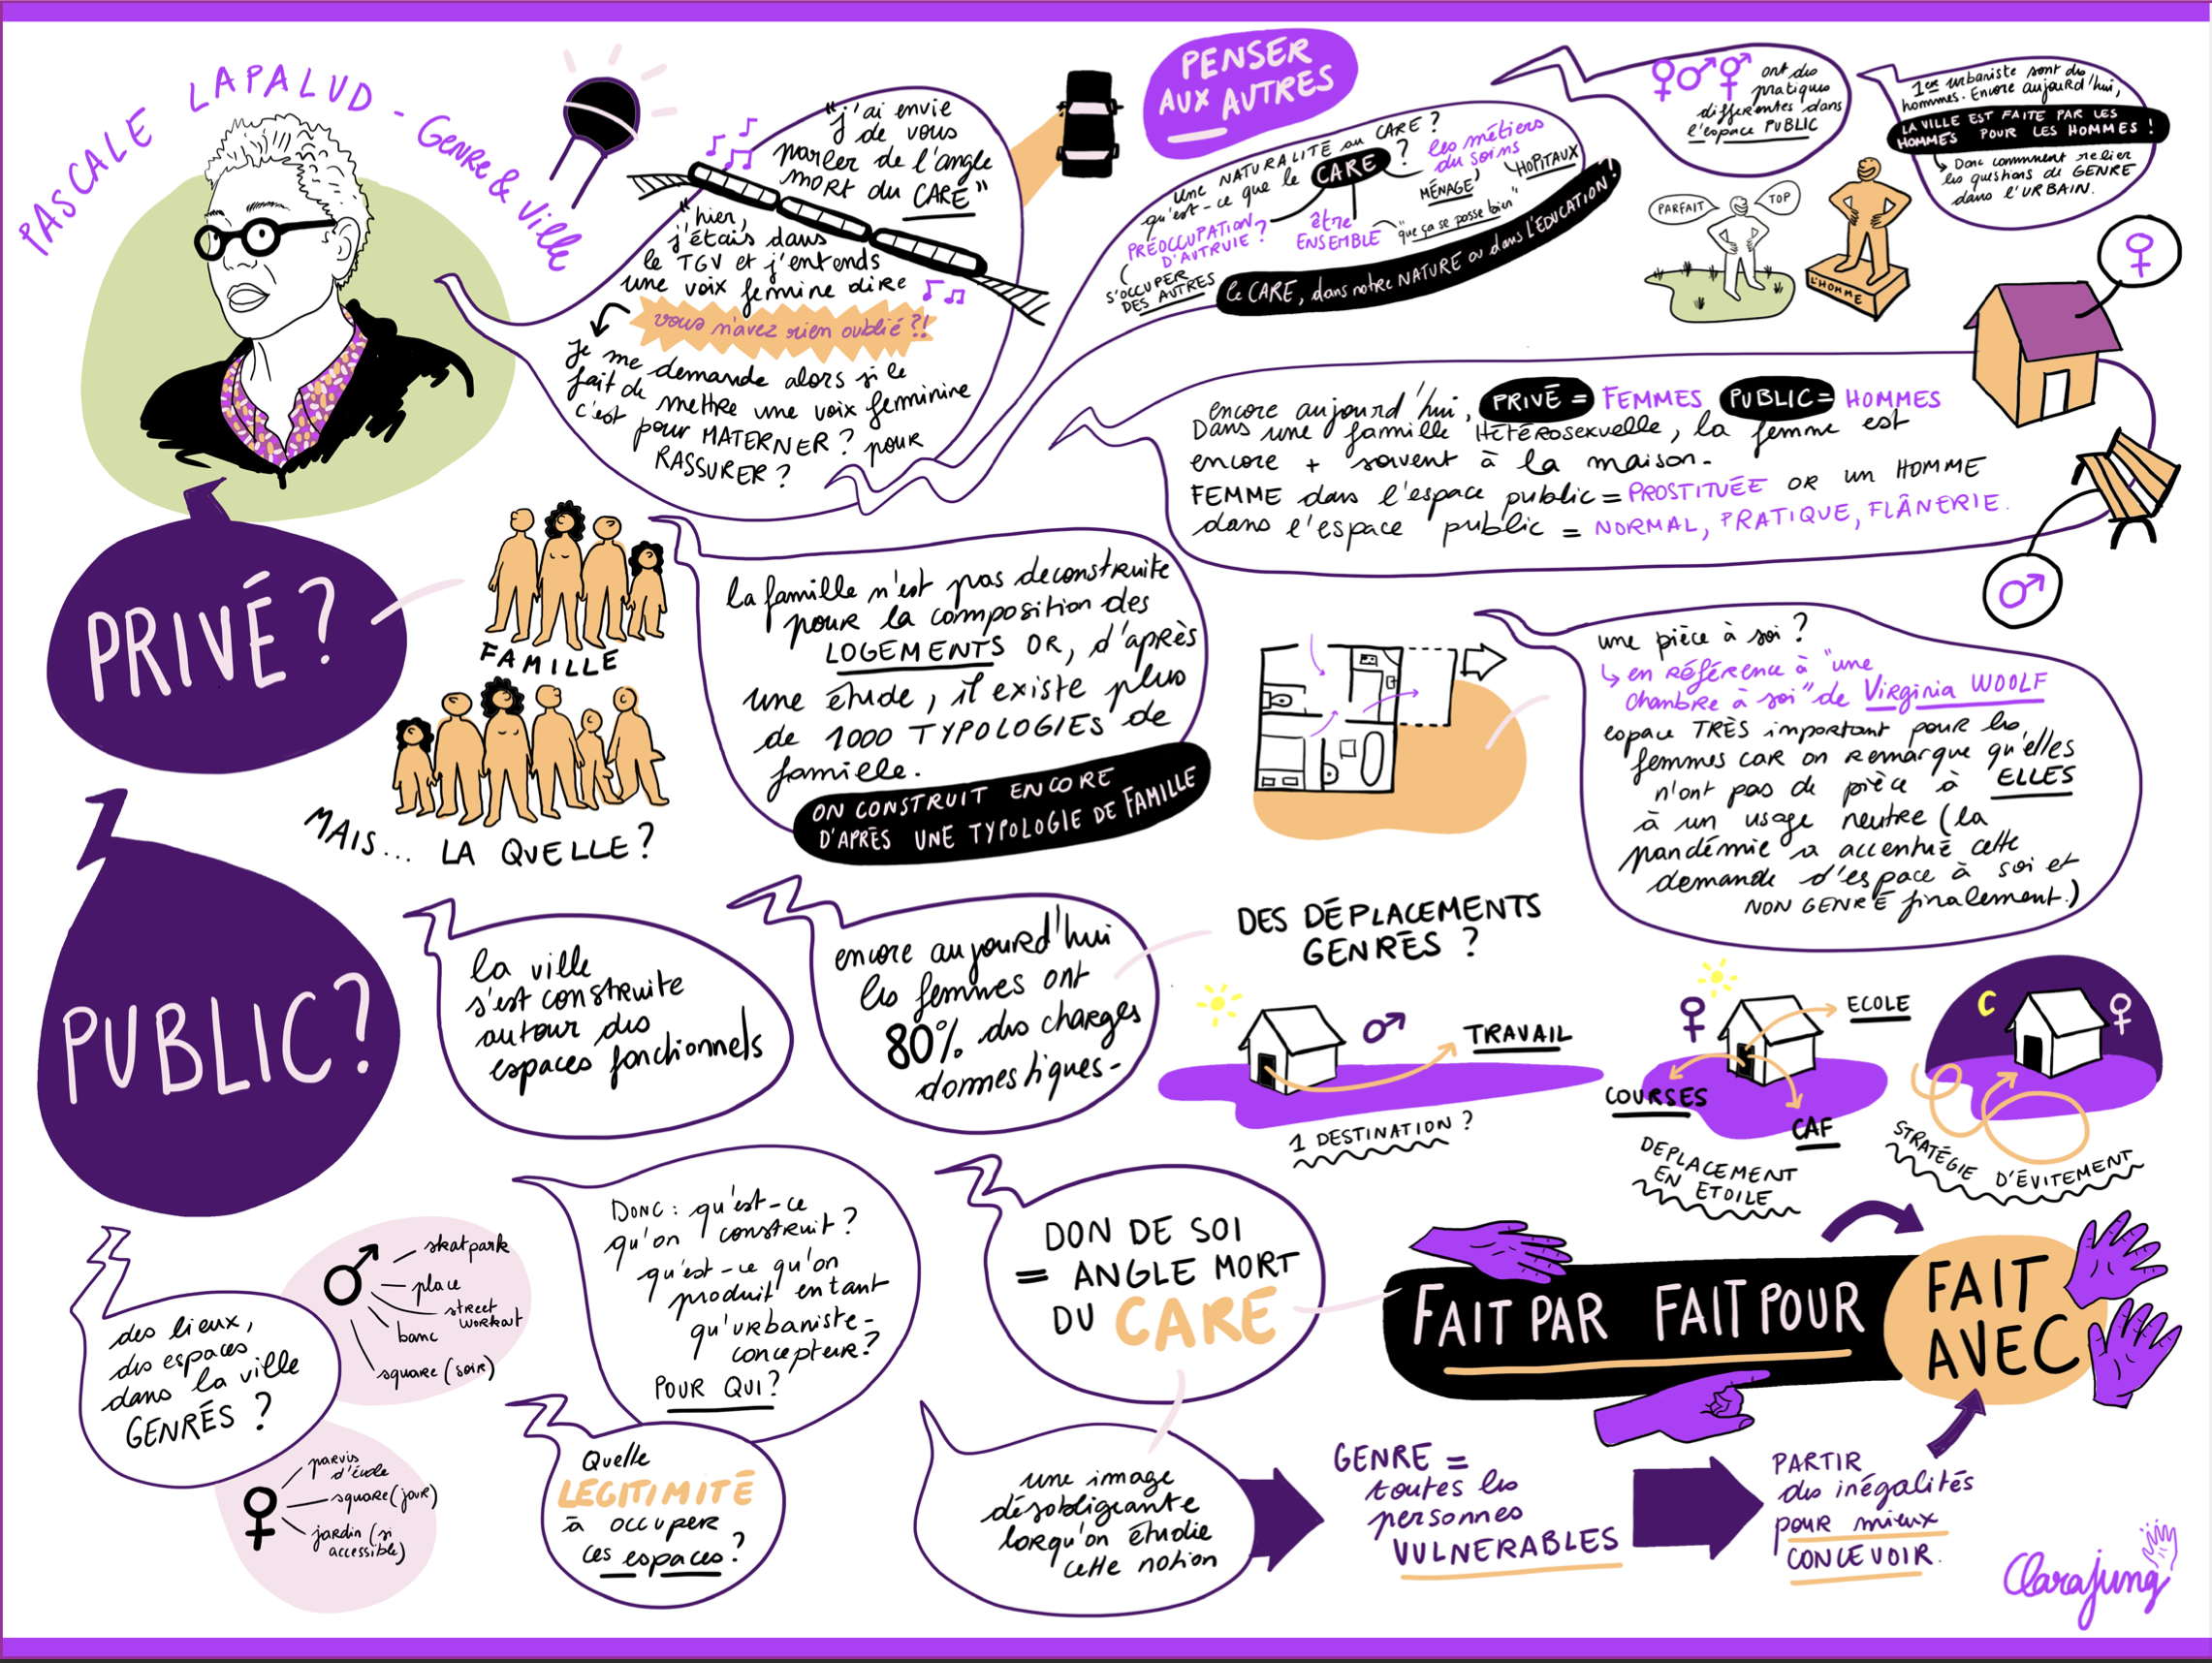 PASCALE LAPALUD - Genre & Ville
"j'ai envie
de vous
parler de l'angle
mort du CARE"
"hier,
j'étais dans
le TGV et j'entends
une voix femmine dire
vous n'avez rien oublié ?!
Je me demande alors si le
fait de mettre une voix femminine
c'est pour MATERNER ? pour
RASSURER ?
PENSER
AUX AUTRES
une NATURALITÉ au CARE ?
qu'est-ce que le CARE ?
les métiers
du soins
HOPITAUX
MÉNAGE
PRÉOCCUPATION
D'AUTRUIE ?
être
ENSEMBLE
"que ça se passe bien"
S'OCCUPER
DES AUTRES
le CARE, dans notre NATURE ou dans L'ÉDUCATION ?
♀♂⚥ ont des
pratiques
différentes dans
l'espace PUBLIC
1er urbaniste sont des
hommes. Encore aujourd'hui,
LA VILLE EST FAITE PAR LES
HOMMES POUR LES HOMMES !
Donc comment relier
les questions de GENRE
dans l'URBAIN.
PARFAIT
TOP
L'HOMME
♀
encore aujourd'hui, PRIVÉ = FEMMES PUBLIC = HOMMES
Dans une famille Hétérosexuelle, la femme est
encore + souvent à la maison.
FEMME dans l'espace public = PROSTITUÉE OR un HOMME
dans l'espace public = NORMAL, PRATIQUE, FLÂNERIE.
♂
PRIVÉ ?
FAMILLE
MAIS... LA QUELLE ?
la famille n'est pas deconstruite
pour la composition des
LOGEMENTS OR, d'après
une étude, il existe plus
de 1000 TYPOLOGIES de
famille.
ON CONSTRUIT ENCORE
D'APRÈS UNE TYPOLOGIE DE FAMILLE
une pièce à soi ?
↳ en référence à "une
chambre à soi" de Virginia WOOLF
espace TRÈS important pour les
femmes car on remarque qu'elles
n'ont pas de pièce à ELLES
à un usage neutre (la
pandémie a accentué cette
demande d'espace à soi et
NON GENRÉ finalement.)
PUBLIC ?
la ville
s'est construite
autour des
espaces fonctionnels
encore aujourd'hui
les femmes ont
80% des charges
domestiques-
DES DÉPLACEMENTS
GENRÉS ?
♂
TRAVAIL
1 DESTINATION ?
♀
ECOLE
COURSES
CAF
DEPLACEMENT
EN ETOILE
♀
STRATÉGIE D'ÉVITEMENT
des lieux,
des espaces
dans la ville
GENRÉS ?
♂
skatpark
place
street
workout
banc
square (soir)
♀
parvis
d'école
square (jour)
jardin (si
accessible)
DONC : qu'est-ce
qu'on construit ?
qu'est-ce qu'on
produit en tant
qu'urbaniste-
concepteur ?
POUR QUI ?
Quelle
LEGITIMITÉ
à occuper
ces espaces ?
DON DE SOI
= ANGLE MORT
DU CARE
FAIT PAR FAIT POUR
FAIT
AVEC
une image
désobligeante
lorsqu'on étudie
cette notion
GENRE =
toutes les
personnes
VULNERABLES
PARTIR
des inégalités
pour mieux
CONCEVOIR.
Clarajung